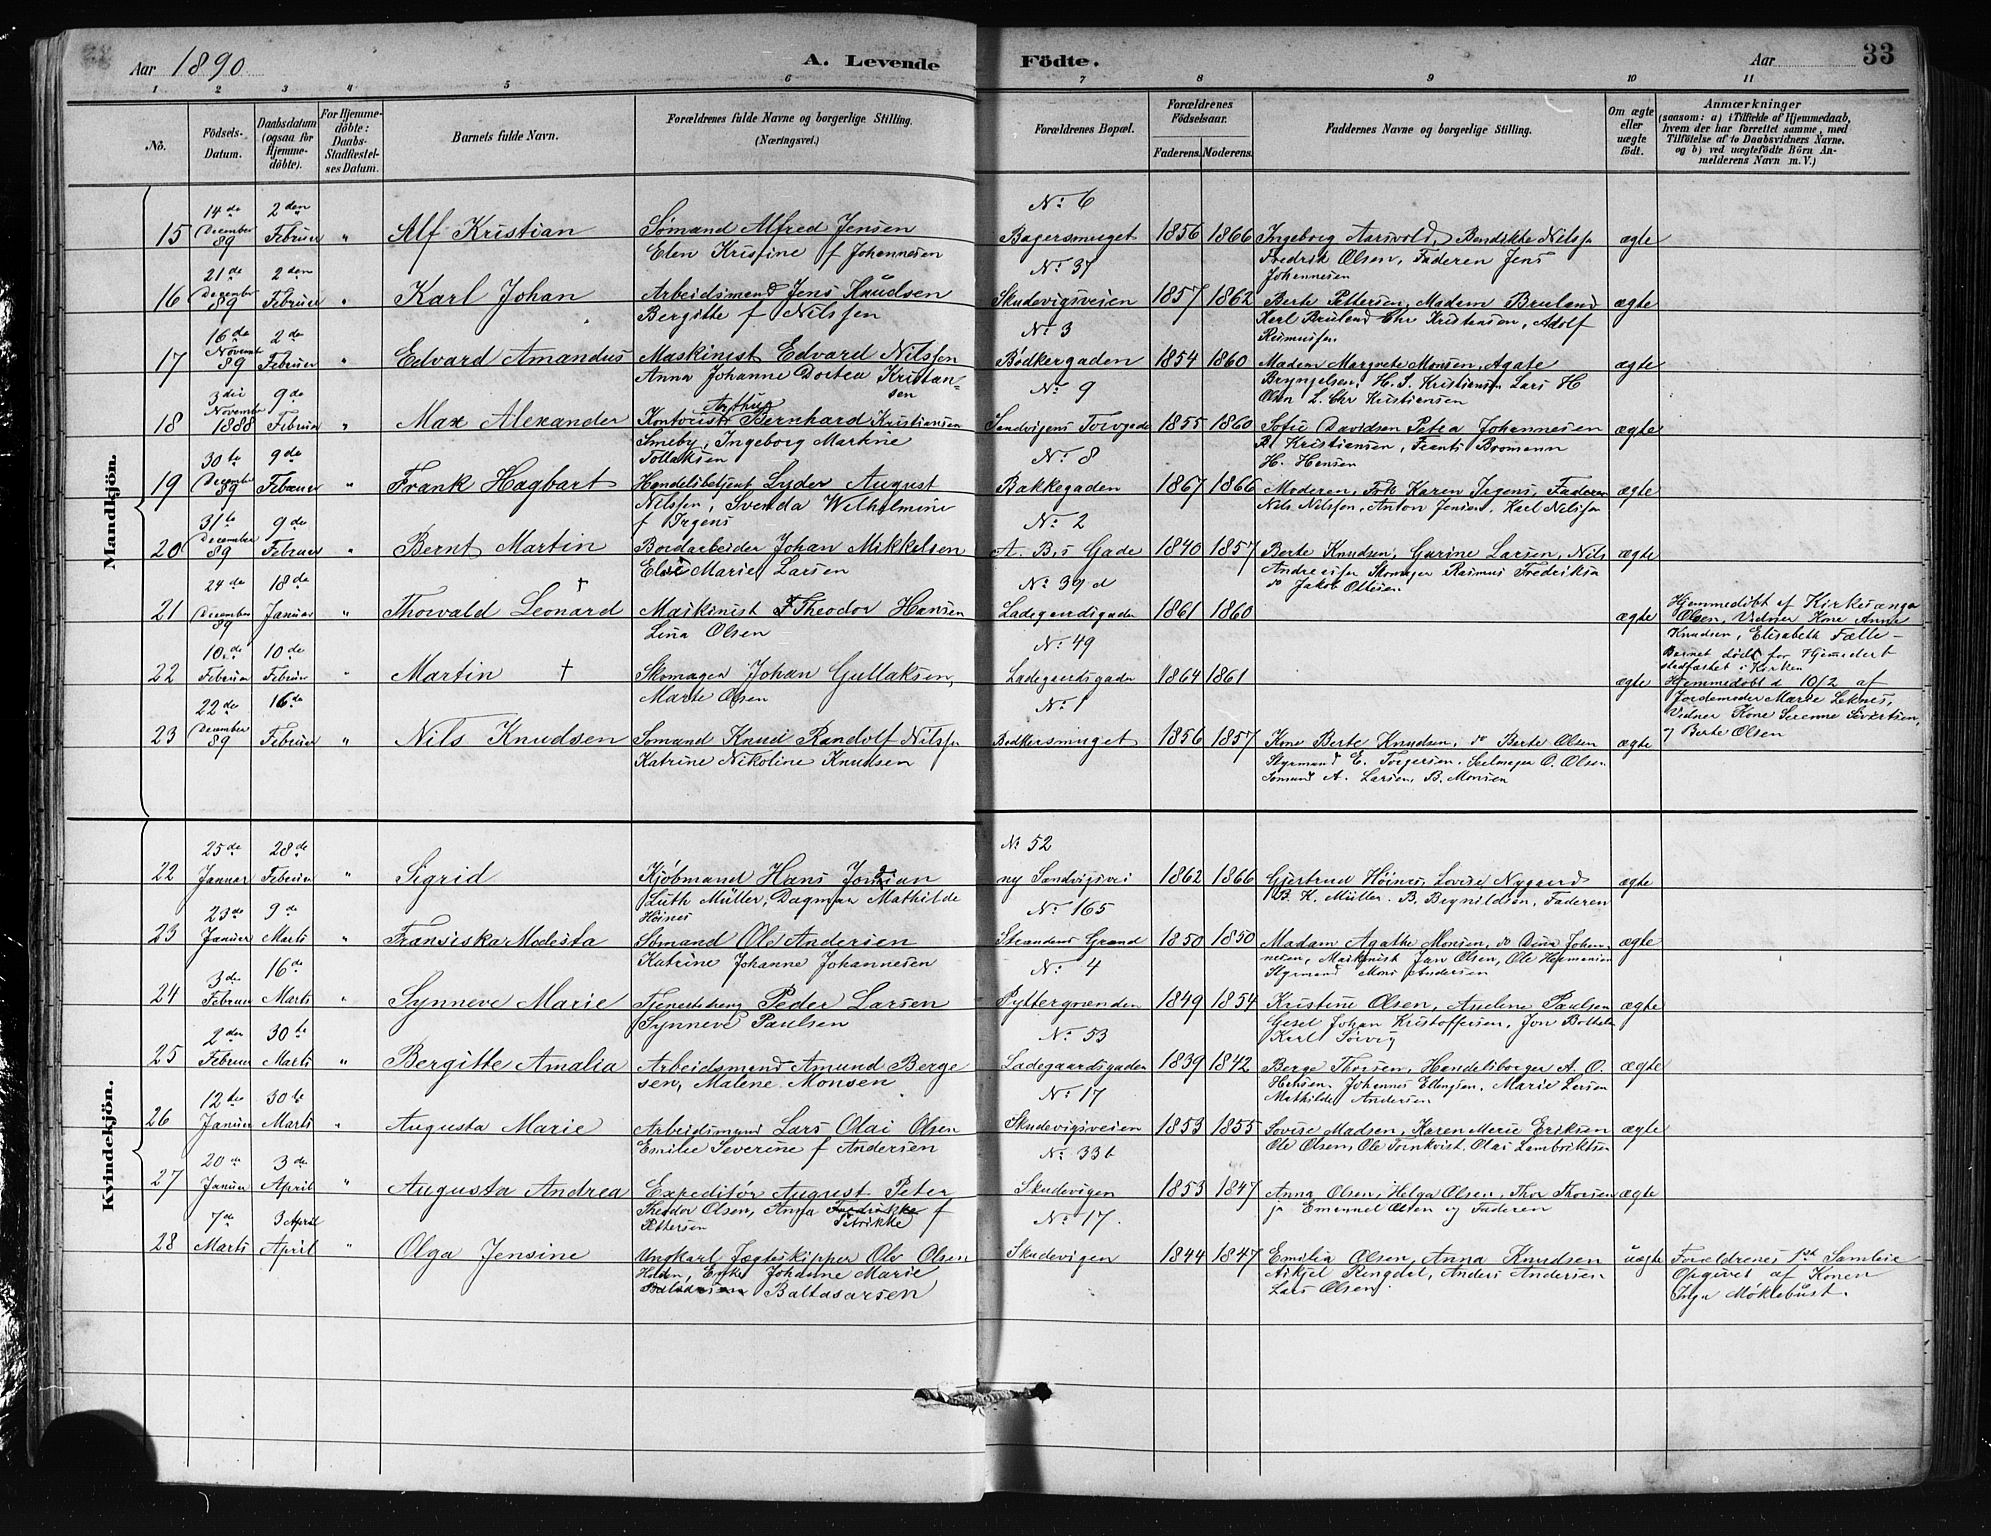 Aar 1890 A. Levende Födte. Aar 33
1 2 3 4 5 6 7 8 9 10 11
No.
Födsels-Datum.
Daabsdatum (ogsaa for Hjemmedöbte).
For Hjemmedöbte: Daabs-Stadfæstelses Datum.
Barnets fulde Navn.
Forældrenes fulde Navne og borgerlige Stilling. (Næringsvei.)
Forældrenes Bopæl.
Forældrenes Födselsaar.
Faderens. Moderens.
Faddernes Navne og borgerlige Stilling.
Om ægte eller uægte födt.
Anmærkninger
(saasom: a) i Tilfælde af Hjemmedaab,
hvem der har forrettet samme, med
Tilföielse af to Daabsvidners Navne.
og b) ved uægtefödte Börn An-
melderens Navn m. V.)
Mandkjön.
14de 2den No 6
15 December 89 Februar " Alf Kristian Sømand Alfred Jensen Bagersmuget 1856 1866 Ingeborg Aarsvold, Bendikte Nilsen ægte
Elen Kristine f Johannesen Fredrik Olsen, Faderen Jens
21de 2den No 37 Johannesen
16 December 89 Februar " Karl Johan Arbeidsmand Jens Knudsen Skudevigsveien 1857 1862 Berte Pettersen, Madam Bruland ægte
Bergitte f Nilssen Karl Bruland Chr Kristensen, Adolf
16de 2de No 3 Rasmussen
17 Novemb 89 Februar " Edvard Amandus Maskinist Edvard Nilssen Bødkergaden 1854 1860 Madam Margrete Monsen, Agate ægte
Anna Johanne Dortea Kristansen Bryngelsen, H. S. Kristiansen Lars H
3die 9de No 9 Olsen L. Chr Kristiansen
18 November 1888 Februar " Max Alexander Kontorist Arthur Bernhard Kristiansen Sandvigens Torvgade 1855 1860 Sofie Davidsen Petra Johannesen ægte
Smeby, Ingeborg Martine Tollaksen B Kristiansen, Frants Bromann
30te 9de No 8 H. Hansen
19 December 89 Februar " Frank Hagbart Handelsbetjent Lyder August Bakkegaden 1867 1866 Moderen, Frk Karen Irgens, Faderen ægte
Nilssen, Svenda Wilhelmine f Irgens Nils Nilssen, Anton Jensen, Karl Nilssen
31te 9de No 2
20 December 89 Februar " Bernt Martin Bordarbeider Johan Mikkelsen A. B,s Gade 1840 1857 Berte Knudsen, Gurine Larsen, Nils ægte
Elise Marie Larsen Andreassen Skomager Rasmus Fredriksen
24de 18de No 39 d do Jakob Ottesen
21 December 89 Januar " Thorvald Leonard † Maskinist Theodor Hansen Ladegaardsgaden 1861 1860 ægte Hjemmedøbt af Kirkesanger
Lina Olsen Olsen, Vidner Kone Anna
Knudsen, Elisabeth Fælle-
Barnet døde før Hjemmedaab
stadfæstet i Kirken
10de 10de No 49
22 Februar Februar " Martin † Skomager Johan Gullaksen, Ladegaardsgaden 1864 1861 ægte Hjemmedøbt d 10/2 af
Marte Olsen Jordemoder Marte Leknes,
Vidner Kone Serenne Sivertsen,
og Berte Olsen
22de 16de No 1
23 December 89 Februar " Nils Knudsen Sømand Knud Randolf Nilsen Bødkersmuget 1856 1857 Kone Berte Knudsen, do Berte Olsen ægte
Katrine Nikoline Knudsen Styrmand E. Torgersen, Seilmager O. Olsen
Sømand A. Larsen, B. Monsen
Kvindekjön.
25de 28de No 52
22 Januar Februar " Sigrid Kjøbmand Hans Jordan ny Sandvigsvei 1862 1866 Gjertrud Høines, Lovise Nygaard ægte
Lüth Müller, Dagmar Mathilde Høines B. K. Müller. B. Brynildsen, Faderen
23de 9de No 165
23 Januar Marts " Fransiska Modesta Sømand Ole Andersen Strandens Grænd 1850 1850 Madam Agathe Monsen, do Dina Johan- ægte
Katrine Johanne Johannesen nesen, Maskinist Jan Olsen, Ole Hermansen
3de 16de No 4 Styrmand Mons Andersen
24 Februar Marts " Synneve Marie Tjenestekarl Peder Larsen Pyttergrænden 1849 1854 Kristine Olsen, Anelene Paulsen ægte
Synneve Paulsen Gesel Johan Kristoffersen, Jon
2den 30te No 53 Karl Sørvig
25 Februar Marts " Bergitte Amalia Arbeidsmand Amund Berge Ladegaardsgaden 1839 1842 Berge Thorsen, Handelsborger A. O. ægte
sen, Malene Monsen Hansen, Johannes Ellingsen, Marie Larsen
12te 30te No 17 Mathilde Andersen
26 Januar Marts " Augusta Marie Arbeidsmand Lars Olai Olsen Skudevigsveien 1853 1855 Lovise Madsen, Karen Marie Eriksen ægte
Emilie Severine f Andersen Ole Olsen, Ole Tornkvist, Olai Lambriktsen
20de 3de No 33b
27 Januar April " Augusta Andrea Expeditør August Peter Skudevigen 1853 1847 Anna Olsen, Helga Olsen, Thor Thorsen ægte
Theodor Olsen, Anna Fredrikke Petrikke f Pettersen Emanuel Olsen og Faderen
7de 3 April No 17.
28 Marts April " Olga Jensine Ungkarl Jægteskipper Ole Olsen Skudevigen 1844 1847 Emilia Olsen, Anna Knudsen uægte Forældrenes 1st Samleie
Holden, Enke Johanne Marie Askjel Ringdal, Anders Andersen Opgivet af Konen
Baltasarsen Lars Olsen. Inga Møklebust.